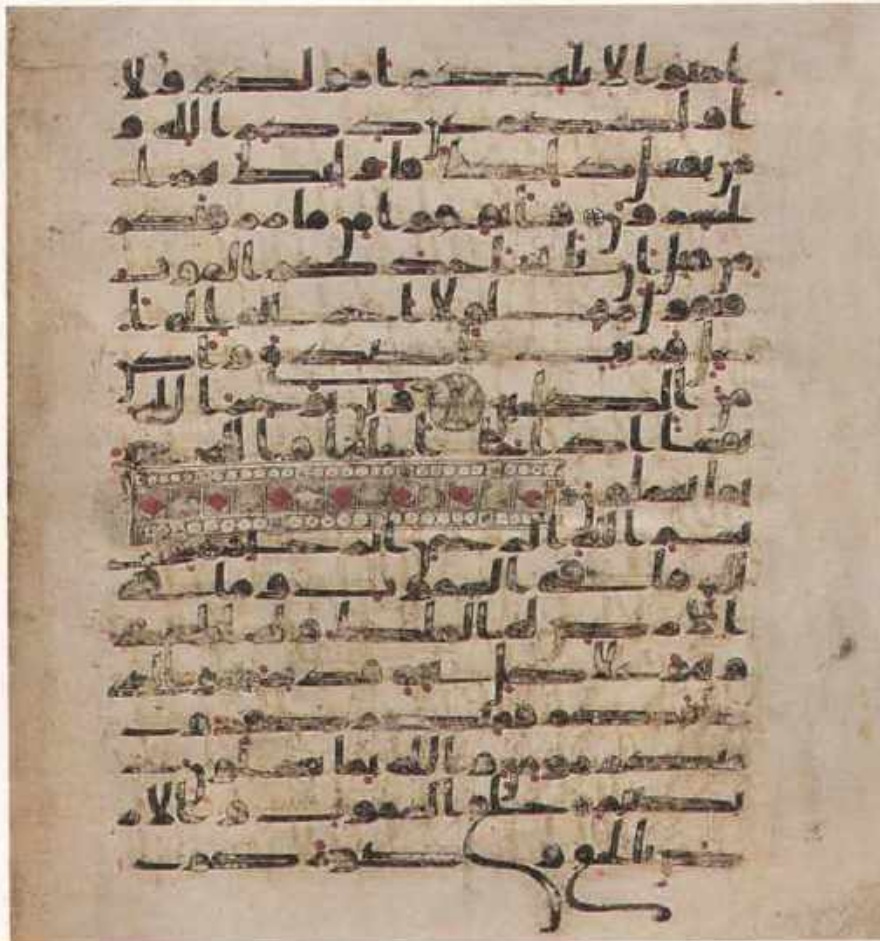 امنوا لا تلهكم امولكم ولا
اولدكم عن ذكر الله و
من يفعل ذلك فاوليك هم ا
لخسرون وانفقوا من ما رزقنكم
من قبل ان ياتى احدكم الموت
فيقول رب لولا اخرتنى الى ا
جل قريب فاصدق واكن
من الصلحين ولن يوخر الله
نفسا اذا جا اجلها والله خبير
بما تعملون
بسم الله الرحمن الرحيم يسبح
لله ما فى السموت وما فى
الارض له الملك وله الحمد
وهو على كل شى قدير هو الذى
خلقكم فمنكم كفر و
منكم مومن والله بما تعملون
بصير خلق السموت والار
ض بالحق وصوركم فاحسن